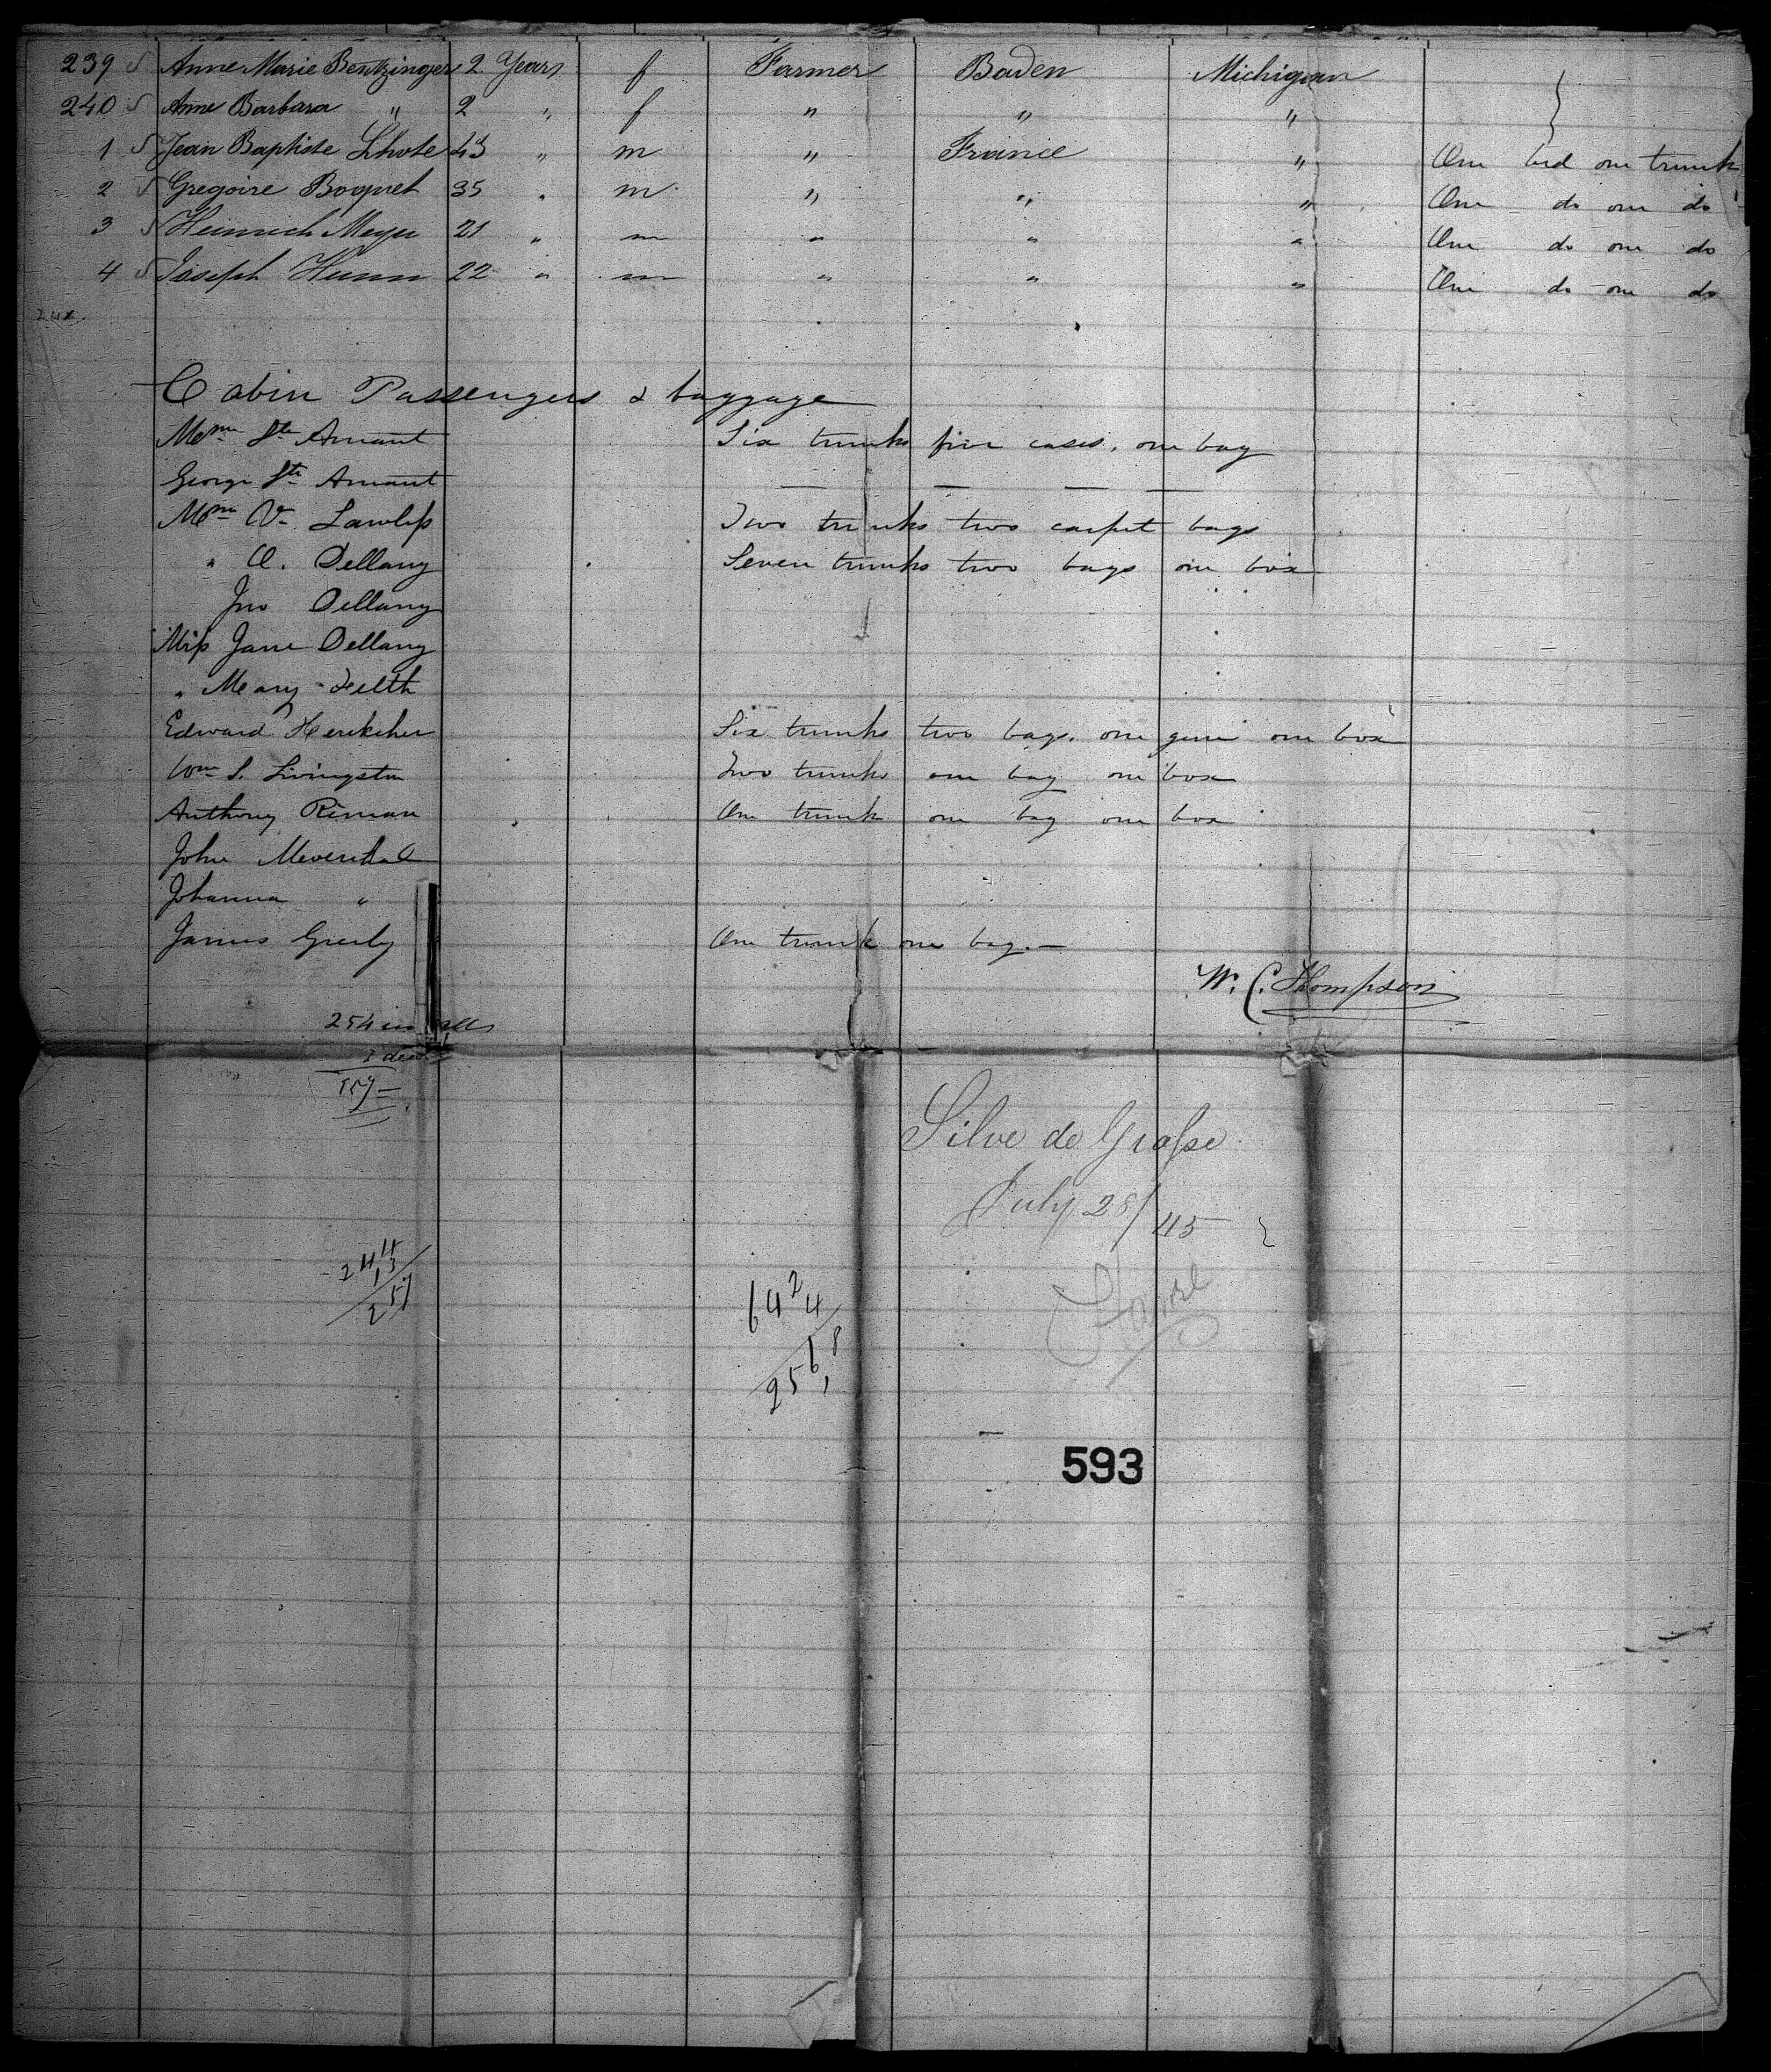 239 Anne Marie Bentzinger 2 Years f Farmer Baden Michigan
240 Anne Barbara " 2 " f " " "
1 Jean Baptiste Lhote 43 " m " France " One bed one trunk
2 Gregoire Boquet 35 " m " " " One do one do
3 Heinrich Meyer 21 " m " " " One do one do
4 Joseph Humm 22 " m " " " One do one do
Cabin Passengers & baggage
Mme Ste Amant Six trunks five cases, one bag
George Ste Amant — — — —
Mme Lawless Two trunks two carpet bags
" O. Dellany Seven trunks two bags one box
Jno Dellany
Miss Jane Dellany
" Mary
Edward Six trunks two bags. one gun one box
Wm S. Livingston Two trunks one bag one box
Anthony Riman One trunk one bag one box
John
Johanna "
James Greely One trunk one bag.—
W. C. Thompson
254 in all
257
Silve de Grasse
July 28/45
244
13
257
642
4
2568
Havre
593